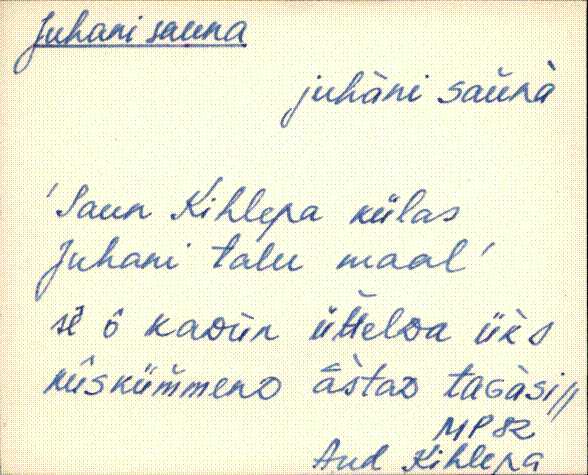 Juhani sauna
juhàni saùnà
'Saun Kihlepa külas
Juhani talu maal'
kadùn üttelDa üks
küskümmenD āstaD taGàsi//
MP 82
Aud Kihlepa